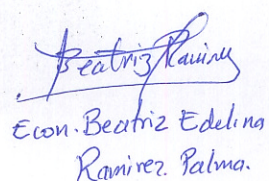 Beatriz Ramirez
Econ. Beatriz Edelina
Ramirez. Palma.